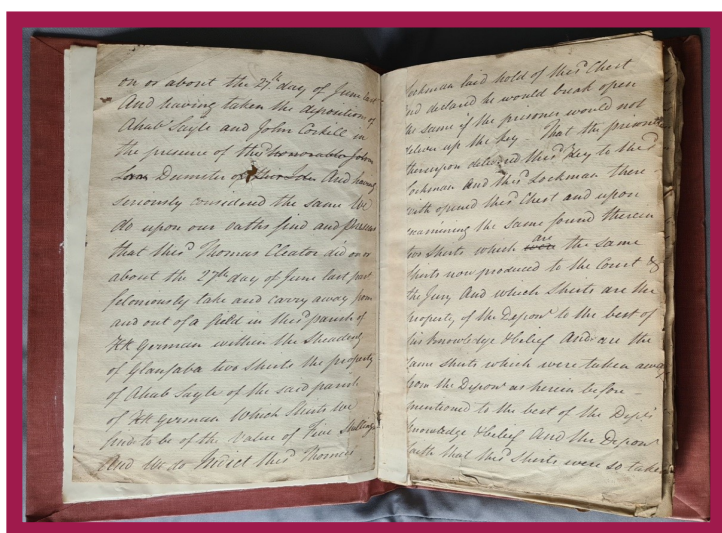 on or about the 27th day of June last
And having taken the depositions of
Ahab Sayle and John Corkill in
the presence of the sd honorable John
Deemster And having
seriously considered the same We
do upon our oaths find and present
that the sd Thomas Cleator did on or
about the 27th day of June last past
feloniously take and carry away from
and out of a field in the sd parish of
KK German within the Sheading
of Glanfaba two Shirts the property
of Ahab Sayle of the said parish
of KK German Which Shirts we
find to be of the value of Five Shillings
And We do Indict the sd Thomas
Lockman laid hold of the sd Chest
and declared he would break open
the same if the prisoner would not
deliver up the key – That the prisoner
thereupon delivered the sd Key to the sd
Lockman And the sd Lockman there-
with opened the sd Chest and upon
examining the same found therein
two Shirts which are the same
Shirts now produced to the Court &
the Jury And which Shirts are the
property, of the Deponr to the best of
his knowledge & belief And are the
same Shirts which were taken away
from the Deponr as herein before–
mentioned to the best of the Depts
knowledge & belief And the Deponr
saith that the sd Shirts were so taken